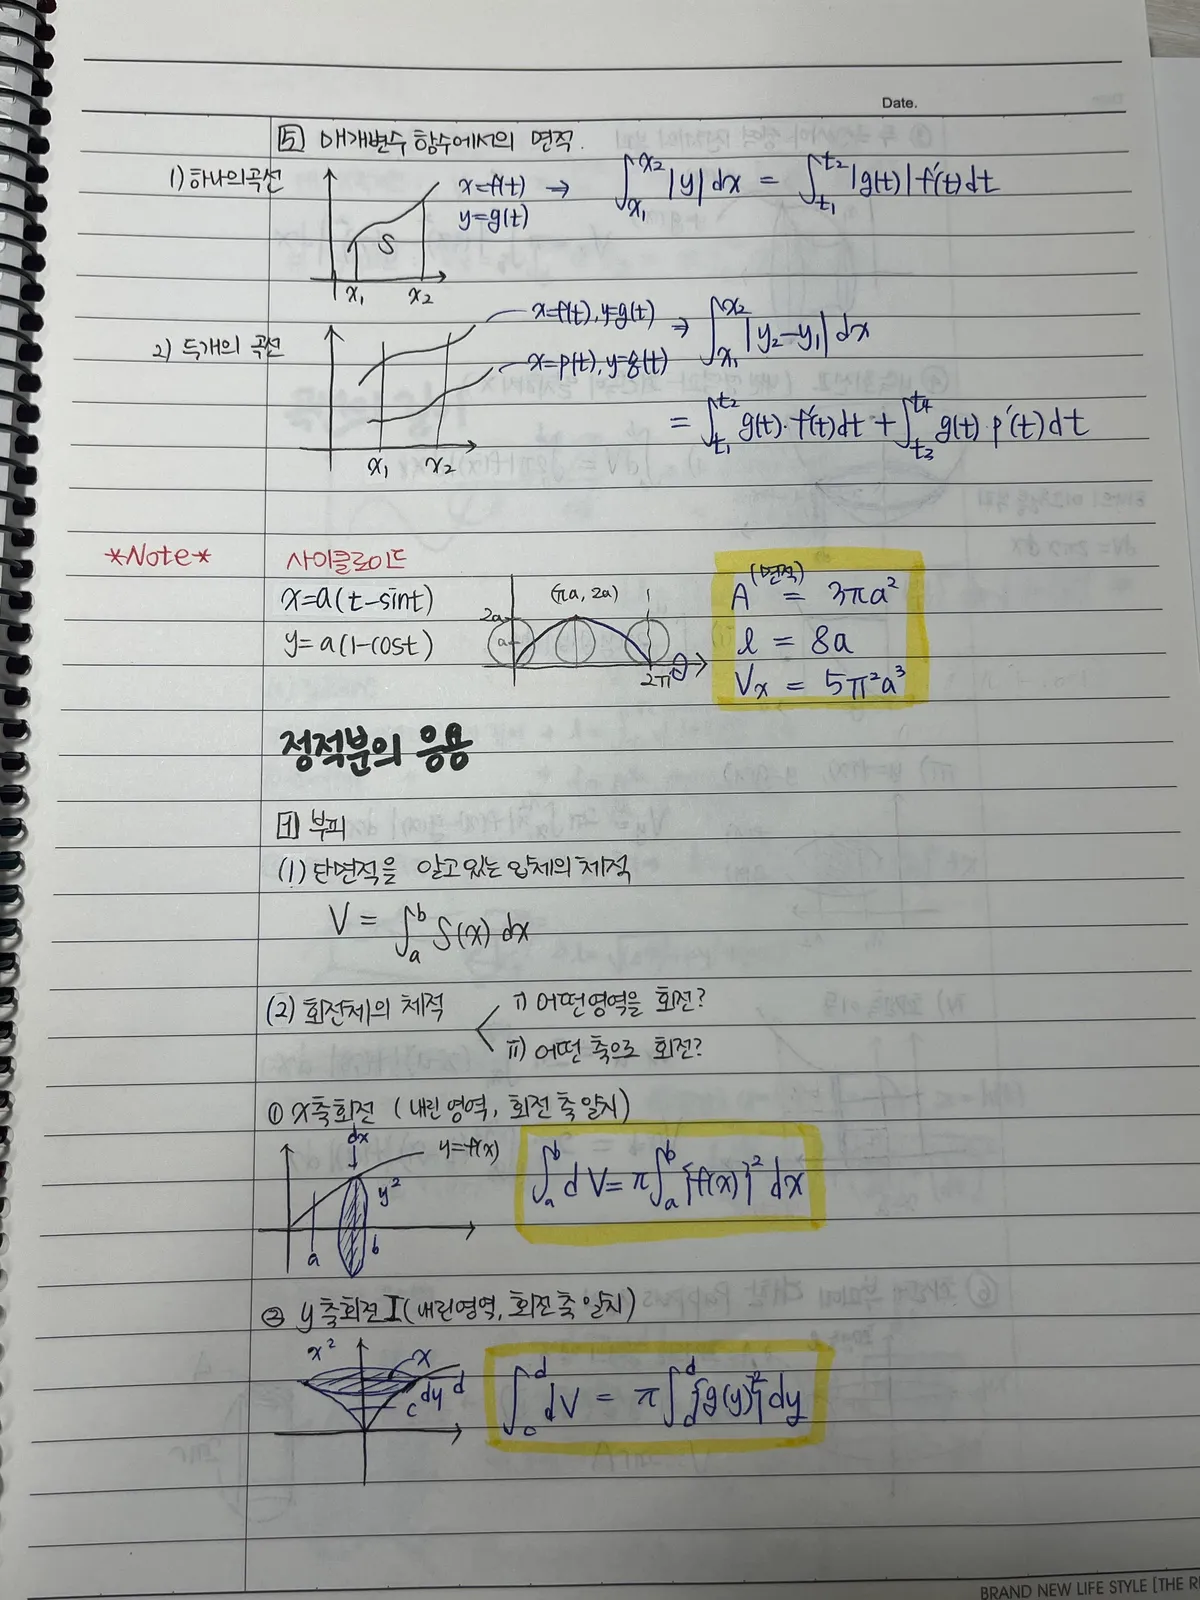 Date.
5 매개변수 함수에서의 면적.
1) 하나의 곡선
x=f(t) ⇒ ∫x₁x₂ |y| dx = ∫t₁t₂ |g(t)| f'(t) dt
y=g(t)
S
x₁ x₂
2) 두개의 곡선
x=f(t), y=g(t) ⇒ ∫x₁x₂ |y₂-y₁| dx
x=p(t), y=g(t)
= ∫t₁t₂ g(t)·f'(t)dt + ∫t₃t₄ g(t)·p'(t)dt
x₁ x₂
*Note* 사이클로이드
x=a(t-sint)
y=a(1-cost)
2a (πa, 2a)
a
2π
A (면적) = 3πa²
l = 8a
Vx = 5π²a³
정적분의 응용
1 부피
(1) 단면적을 알고있는 입체의 체적
V = ∫ab S(x) dx
(2) 회전체의 체적
i) 어떤영역을 회전?
ii) 어떤 축으로 회전?
① x축회전 (내린 영역, 회전 축 일치)
dx
y=f(x)
y²
a b
∫ab dV = π∫ab {f(x)}² dx
② y축회전 I (내린영역, 회전 축 일치)
x² x
dy d
c
∫cd dV = π∫dd {g(y)}² dy
BRAND NEW LIFE STYLE [THE